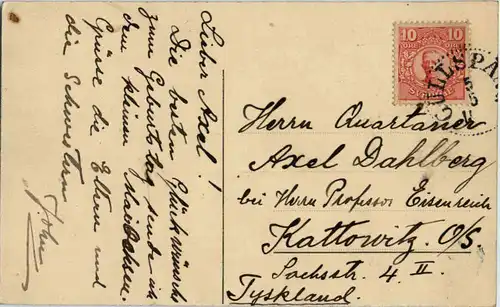 Lieber Axel!
Die besten Glückwünsche
zum Geburtstag sende ich
dem kleinen
Grüsse die Eltern und
die Schwestern
John
10 10
ÖRE
Herrn Quartaner
Axel Dahlberg
bei Herrn Professor Eisenreich
Kattowitz. O/S.
Sachsstr. 4. II.
Tyskland.